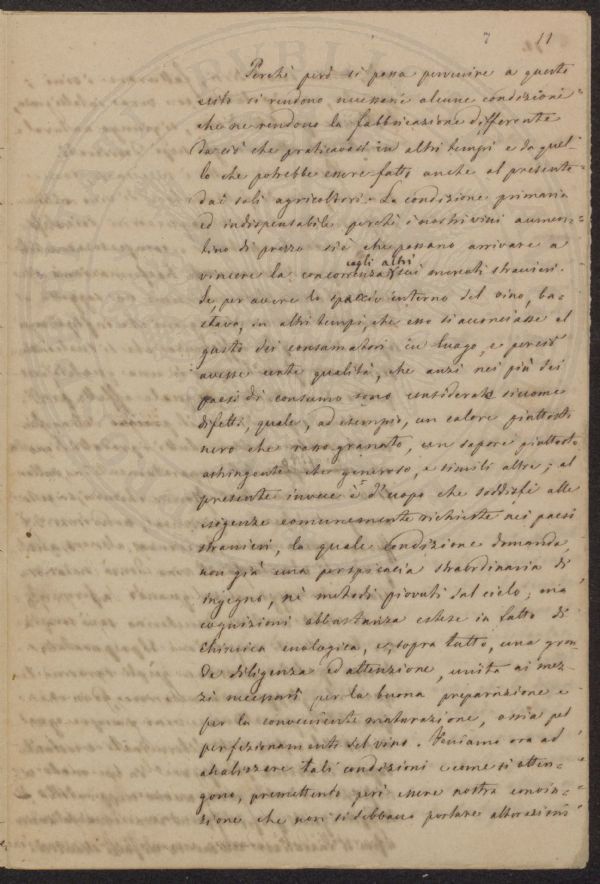 7 11
Perchè però si possa pervenire a questo
esito si rendono necessarie alcune condizioni
che ne rendono la fabbricazione differente
da ciò che praticavasi in altri tempi e da quel-
lo che potrebbe essere fatto anche al presente
dai soli agricoltori. La condizione primaria
ed indispensabile perchè i nostri vini aumen-
tino di prezzo si è che possano arrivare a
cogli altri
vincere la concorrenza sui mercati stranieri.
Se, per avere lo spaccio interno del vino, ba-
stava, in altri tempi, che esso si acconciasse al
gusto dei consumatori in luogo, e perciò
avesse certe qualità, che anzi nei più dei
paesi di consumo sono considerate siccome
difetti, quale, ad esempio, un colore piuttosto
nero che rosso granato, un sapore piuttosto
astringente che generoso, e simili altre; al
presente invece è d'uopo che soddisfi alle
esigenze comunemente richieste nei paesi
stranieri, la quale condizione domanda,
non già una perspicacia straordinaria di
ingegno, nè metodi piovuti dal cielo, ma
cognizioni abbastanza estese in fatto di
chimica enologica, e, sopra tutto, una gran-
de diligenza ed attenzione, unita ai mez-
zi necessari per la buona preparazione e
per la conveniente maturazione, ossia pel
perfezionamento del vino. Veniamo ora ad
analizzare tali condizioni e come si otten-
gono, premettendo però essere nostra convin-
zione che non si debbano portare alterazioni